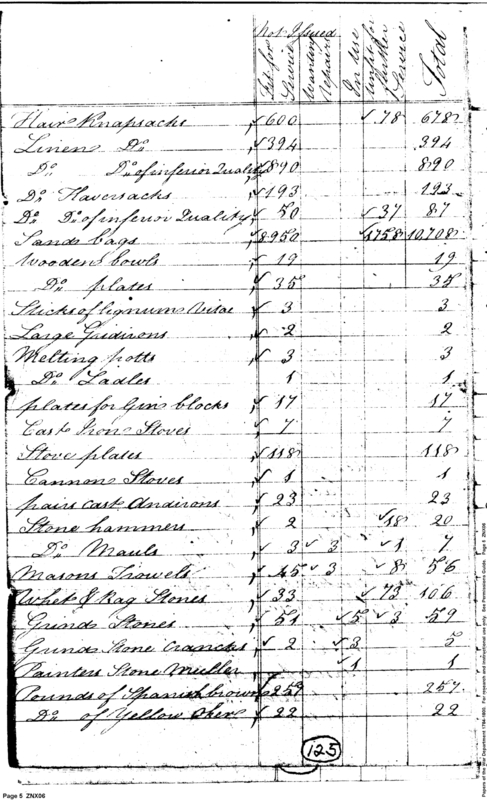 Not Issued
Fit for Service | Wanting Repairs | In Use | Unfit for Further Service | Total
Hair Knapsacks ✓600 ✓78 678
Linen Do ✓394 394
Do Do of inferior Quality ✓890 890
Do Haversacks ✓193 193
Do Do of inferior Quality ✓50 ✓37 87
Sand bags ✓8950 ✓1758 10,708
Wooden bowls ✓19 19
Do plates ✓35 35
Sticks of lignum Vitae ✓3 3
Large Gridirons ✓2 2
Melting potts ✓3 3
Do Ladles 1 1
plates for Gin blocks ✓17 17
Cast Iron Stoves ✓7 7
Stove plates ✓118 118
Cannon Stoves ✓1 1
pairs Cast Andirons ✓23 23
Stone hammers ✓2 ✓18 20
Do Mauls ✓3 ✓3 ✓1 7
Masons Trowels ✓45 ✓3 ✓8 56
Whet & Rag Stones ✓33 ✓73 106
Grind Stones ✓51 ✓5 ✓3 59
Grind Stone Crancks ✓2 ✓3 5
Painters Stone Muller ✓1 1
Pounds of Spanish brown ✓257 257
Do of Yellow Oker ✓22 22
125
Page 5 ZNX06
Papers of the War Department 1784-1800. For research and instructional use only. See Permissions Guide. Page 5 ZNX06